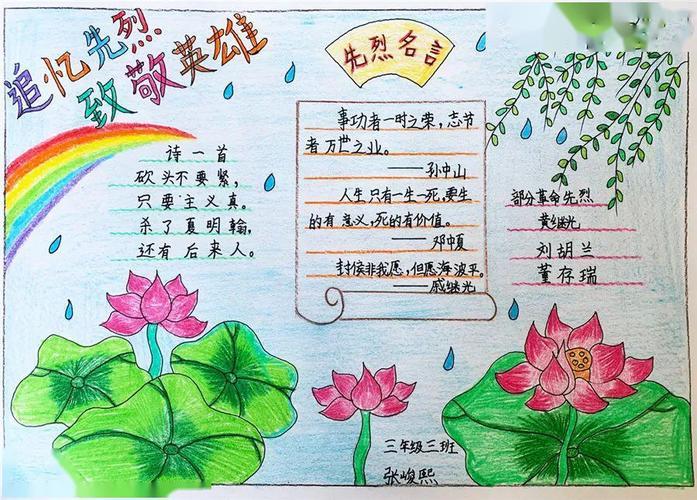 追忆先烈
致敬英雄
先烈名言
诗一首
砍头不要紧，
只要主义真。
杀了夏明翰，
还有后来人。
事功者一时之荣，志节
者万世之业。
——孙中山
人生只有一生一死，要生
的有意义，死的有价值。
——邓中夏
封侯非我愿，但愿海波平。
——戚继光
部分革命先烈
黄继光
刘胡兰
董存瑞
三年级三班
张峻熙